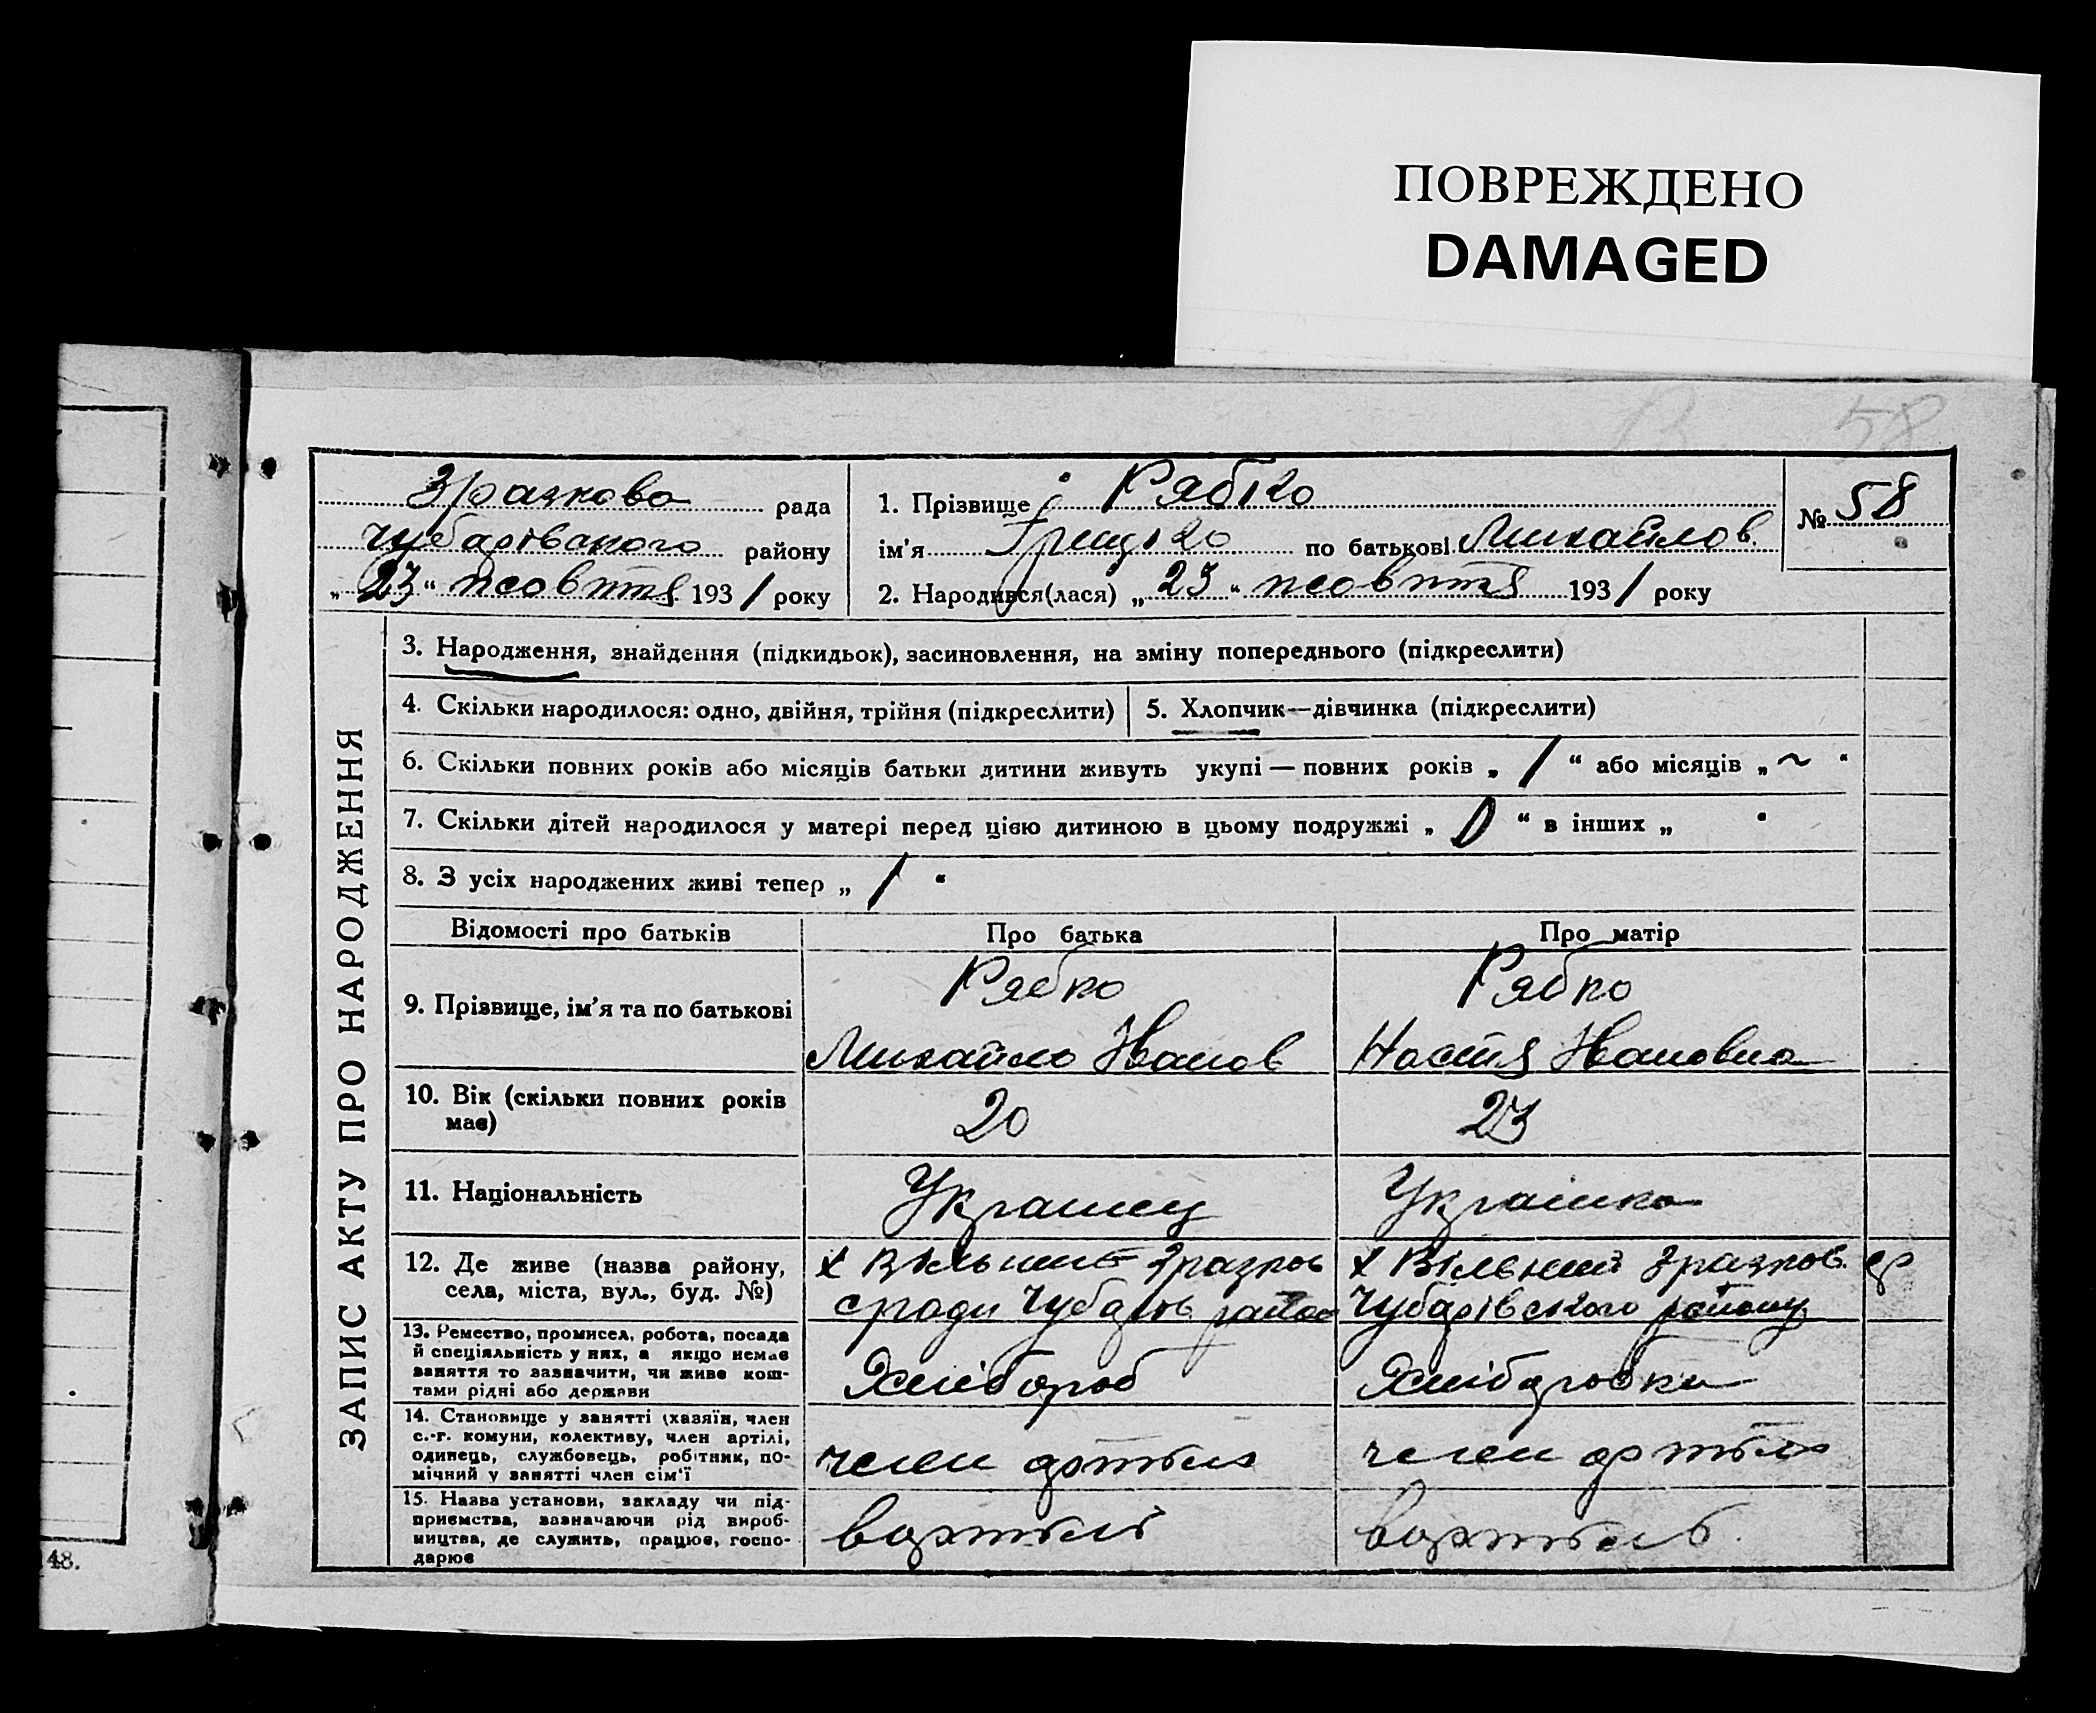 ПОВРЕЖДЕНО
DAMAGED
58
Зразкова рада
Чубарівського району
„ 23 “ жовтня 1931 року
1. Прізвище Рябко
ім'я Грицько по батькові Михайлов.
2. Народився(лася) „ 23 “ жовтня 1931 року
№ 58
ЗАПИС АКТУ ПРО НАРОДЖЕННЯ
3. Народження, знайдення (підкидьок), засиновлення, на зміну попереднього (підкреслити)
4. Скільки народилося: одно, двійня, трійня (підкреслити)
5. Хлопчик—дівчинка (підкреслити)
6. Скільки повних років або місяців батьки дитини живуть укупі — повних років „ 1 “ або місяців „ ~ “
7. Скільки дітей народилося у матері перед цією дитиною в цьому подружжі „ 0 “ в інших „ “
8. З усіх народжених живі тепер „ 1 “
Відомості про батьків
Про батька
Про матір
9. Прізвище, ім'я та по батькові
Рябко
Михайло Іванов
Рябко
Настя Івановна
10. Вік (скільки повних років
має)
20
23
11. Національність
Украінец
Украінка
12. Де живе (назва району,
села, міста, вул., буд. №)
х Вільний Зразков
сради Чубарів район
х Вільний Зразков. ср
Чубарівського району
13. Ремество, промисел, робота, посада
й спеціяльність у них, а якщо немає
заняття то зазначити, чи живе кош-
тами рідні або держави
Хлібороб
Хліборобка
14. Становище у занятті (хазяїн, член
с.-г. комуни, колективу, член артілі,
одинець, службовець, робітник, по-
мічний у занятті член сім'ї
член артіли
член артіли
15. Назва установи, закладу чи під-
приємства, зазначаючи рід вироб-
ництва, де служить, працює, госпо-
дарює
вартілі
вартілі.
48.